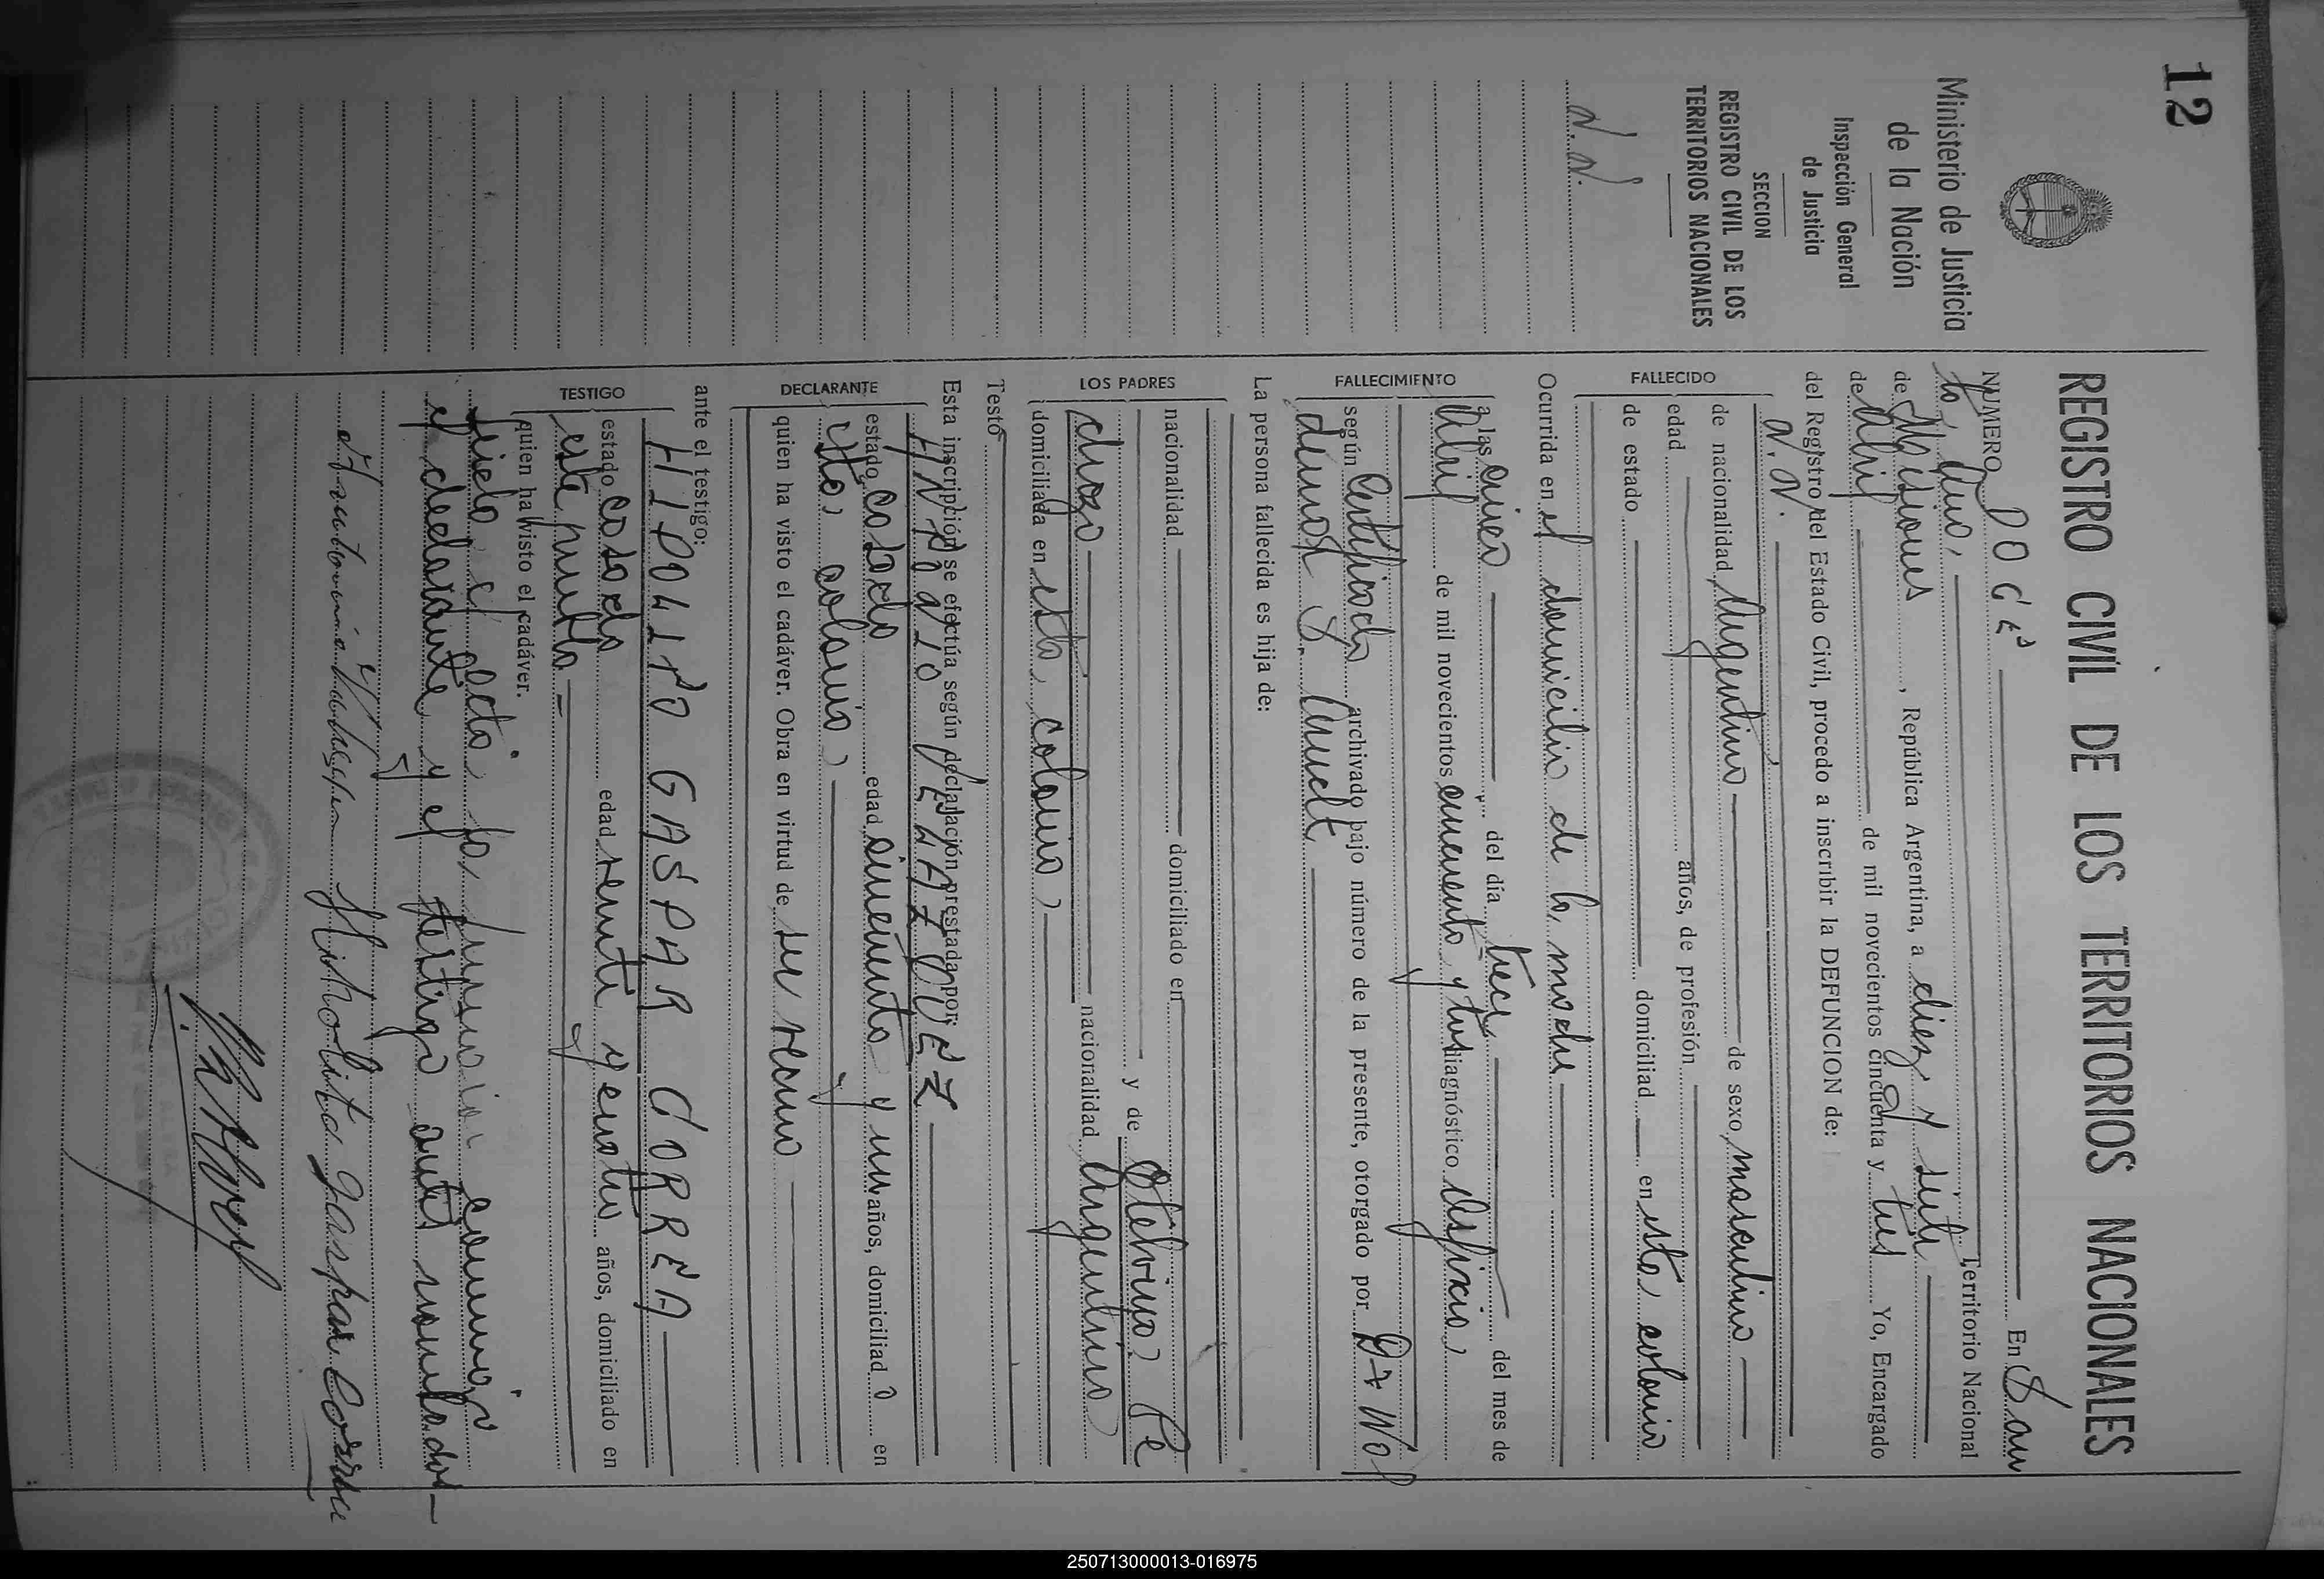 12
Ministerio de Justicia
de la Nación
Inspección General
de Justicia
SECCION
REGISTRO CIVIL DE LOS
TERRITORIOS NACIONALES
N. N.
REGISTRO CIVIL DE LOS TERRITORIOS NACIONALES
NUMERO DOCE En San
ta Ana, Territorio Nacional
de Misiones, República Argentina, a diez y siete
de Abril de mil novecientos cincuenta y tres Yo, Encargado
del Registro del Estado Civil, procedo a inscribir la DEFUNCION de:
N. N.
FALLECIDO
de nacionalidad Argentino de sexo masculino
edad años, de profesión
de estado domiciliad en esta colonia
Ocurrida en el domicilio de la madre
FALLECIMIENTO
a las cinco del día trece del mes de
Abril de mil novecientos cincuenta y tres diagnóstico
según Certificado archivado bajo número de la presente, otorgado por Dr Wol
demar S.
La persona fallecida es hija de:
LOS PADRES
nacionalidad domiciliado en
y de Etelvina Pe
drozo nacionalidad Argentina
domiciliada en esta colonia
Testó
Esta inscripción se efectúa, según declaración prestada por:
DECLARANTE
ANTONIO VELAZQUEZ
estado casado edad cincuenta y un años, domiciliad o en
esta colonia
quien ha visto el cadáver. Obra en virtud de ser vecino
ante el testigo:
TESTIGO
HIPOLITO GASPAR CORREA
estado casado edad veinti y cuatro años, domiciliado en
este pueblo
quien ha visto el cadáver.
Leida el acta, la firman conmigo
el declarante y el testigo antes nombrados
Antonio Velasquez Hipolito Gaspar Correa
250713000013-016975